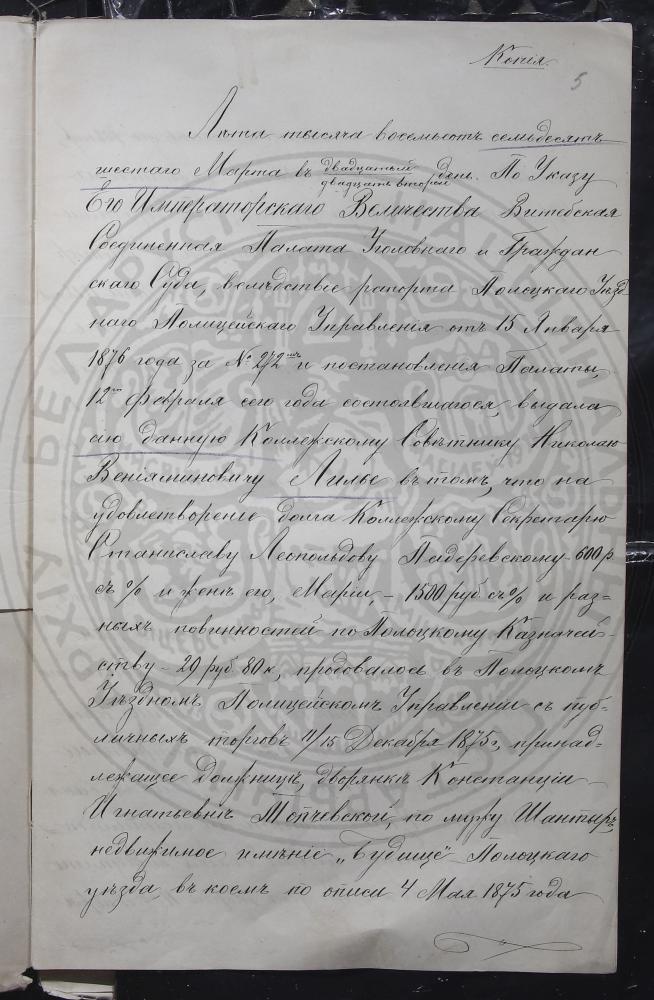 Копія.
5
Лѣта тысяча восемьсотъ семьдесятъ
шестаго Марта въ двадцатый
двадцать второй день. По Указу
Его Императорскаго Величества Витебская
Соединенная Палата Уголовнаго и Граждан
скаго Суда, вслѣдствіе рапорта Полоцкаго Уѣзд
наго Полицейскаго Управленія отъ 15 Января
1876 года за № 272мъ и постановленія Палаты,
12го февраля сего года состоявшагося, выдала
сію данную Коллежскому Совѣтнику Николаю
Веніяминовичу Лилье въ томъ, что на
удовлетвореніе долга Коллежскому Секретарю
Станиславу Леопольдову Падеревскому - 600 р
съ % и женѣ его, Маріи, - 1500 руб съ % и раз=
ныхъ повинностей по Полоцкому Казначей-
ству - 29 руб 80 к, продовалось въ Полоцкомъ
Уѣздномъ Полицейскомъ Управленіи съ пуб-
личныхъ торговъ 11/15 Декабря 1875 г, принад=
лежащее должницѣ, дворянкѣ Констанціи
Игнатьевнѣ Топчевской, по мужу Шантыръ,
недвижимое имѣніе „Будище" Полоцкаго
уѣзда, въ коемъ по описи 4 Мая 1875 года